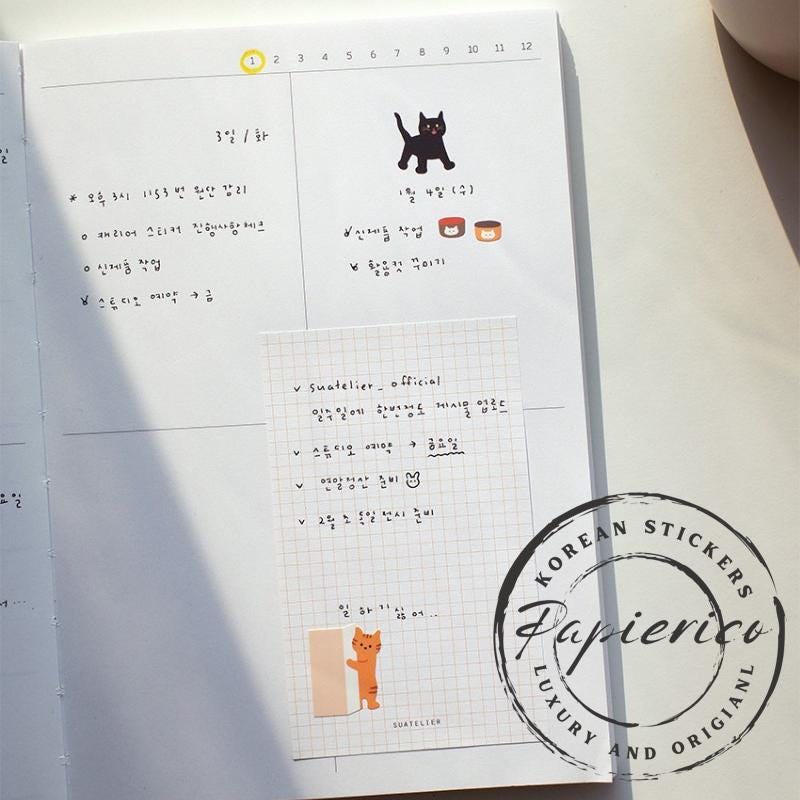 1 2 3 4 5 6 7 8 9 10 11 12
3일 / 화
* 오후 3시 1153번 원단 감리
o 캐리어 스티커 진행사항체크
o 신제품 작업
v 스튜디오 예약 → 금
1월 4일 (수)
v 신제품 작업
v 활용컷 꾸미기
v suatelier_official
일주일에 한번정도 게시물 업로드
v 스튜디오 예약 → 금요일
v 연말정산 준비
v 2월초 독일전시 준비
일 하기 싫어..
SUATELIER
KOREAN STICKERS
Papierico
LUXURY AND ORIGIANL